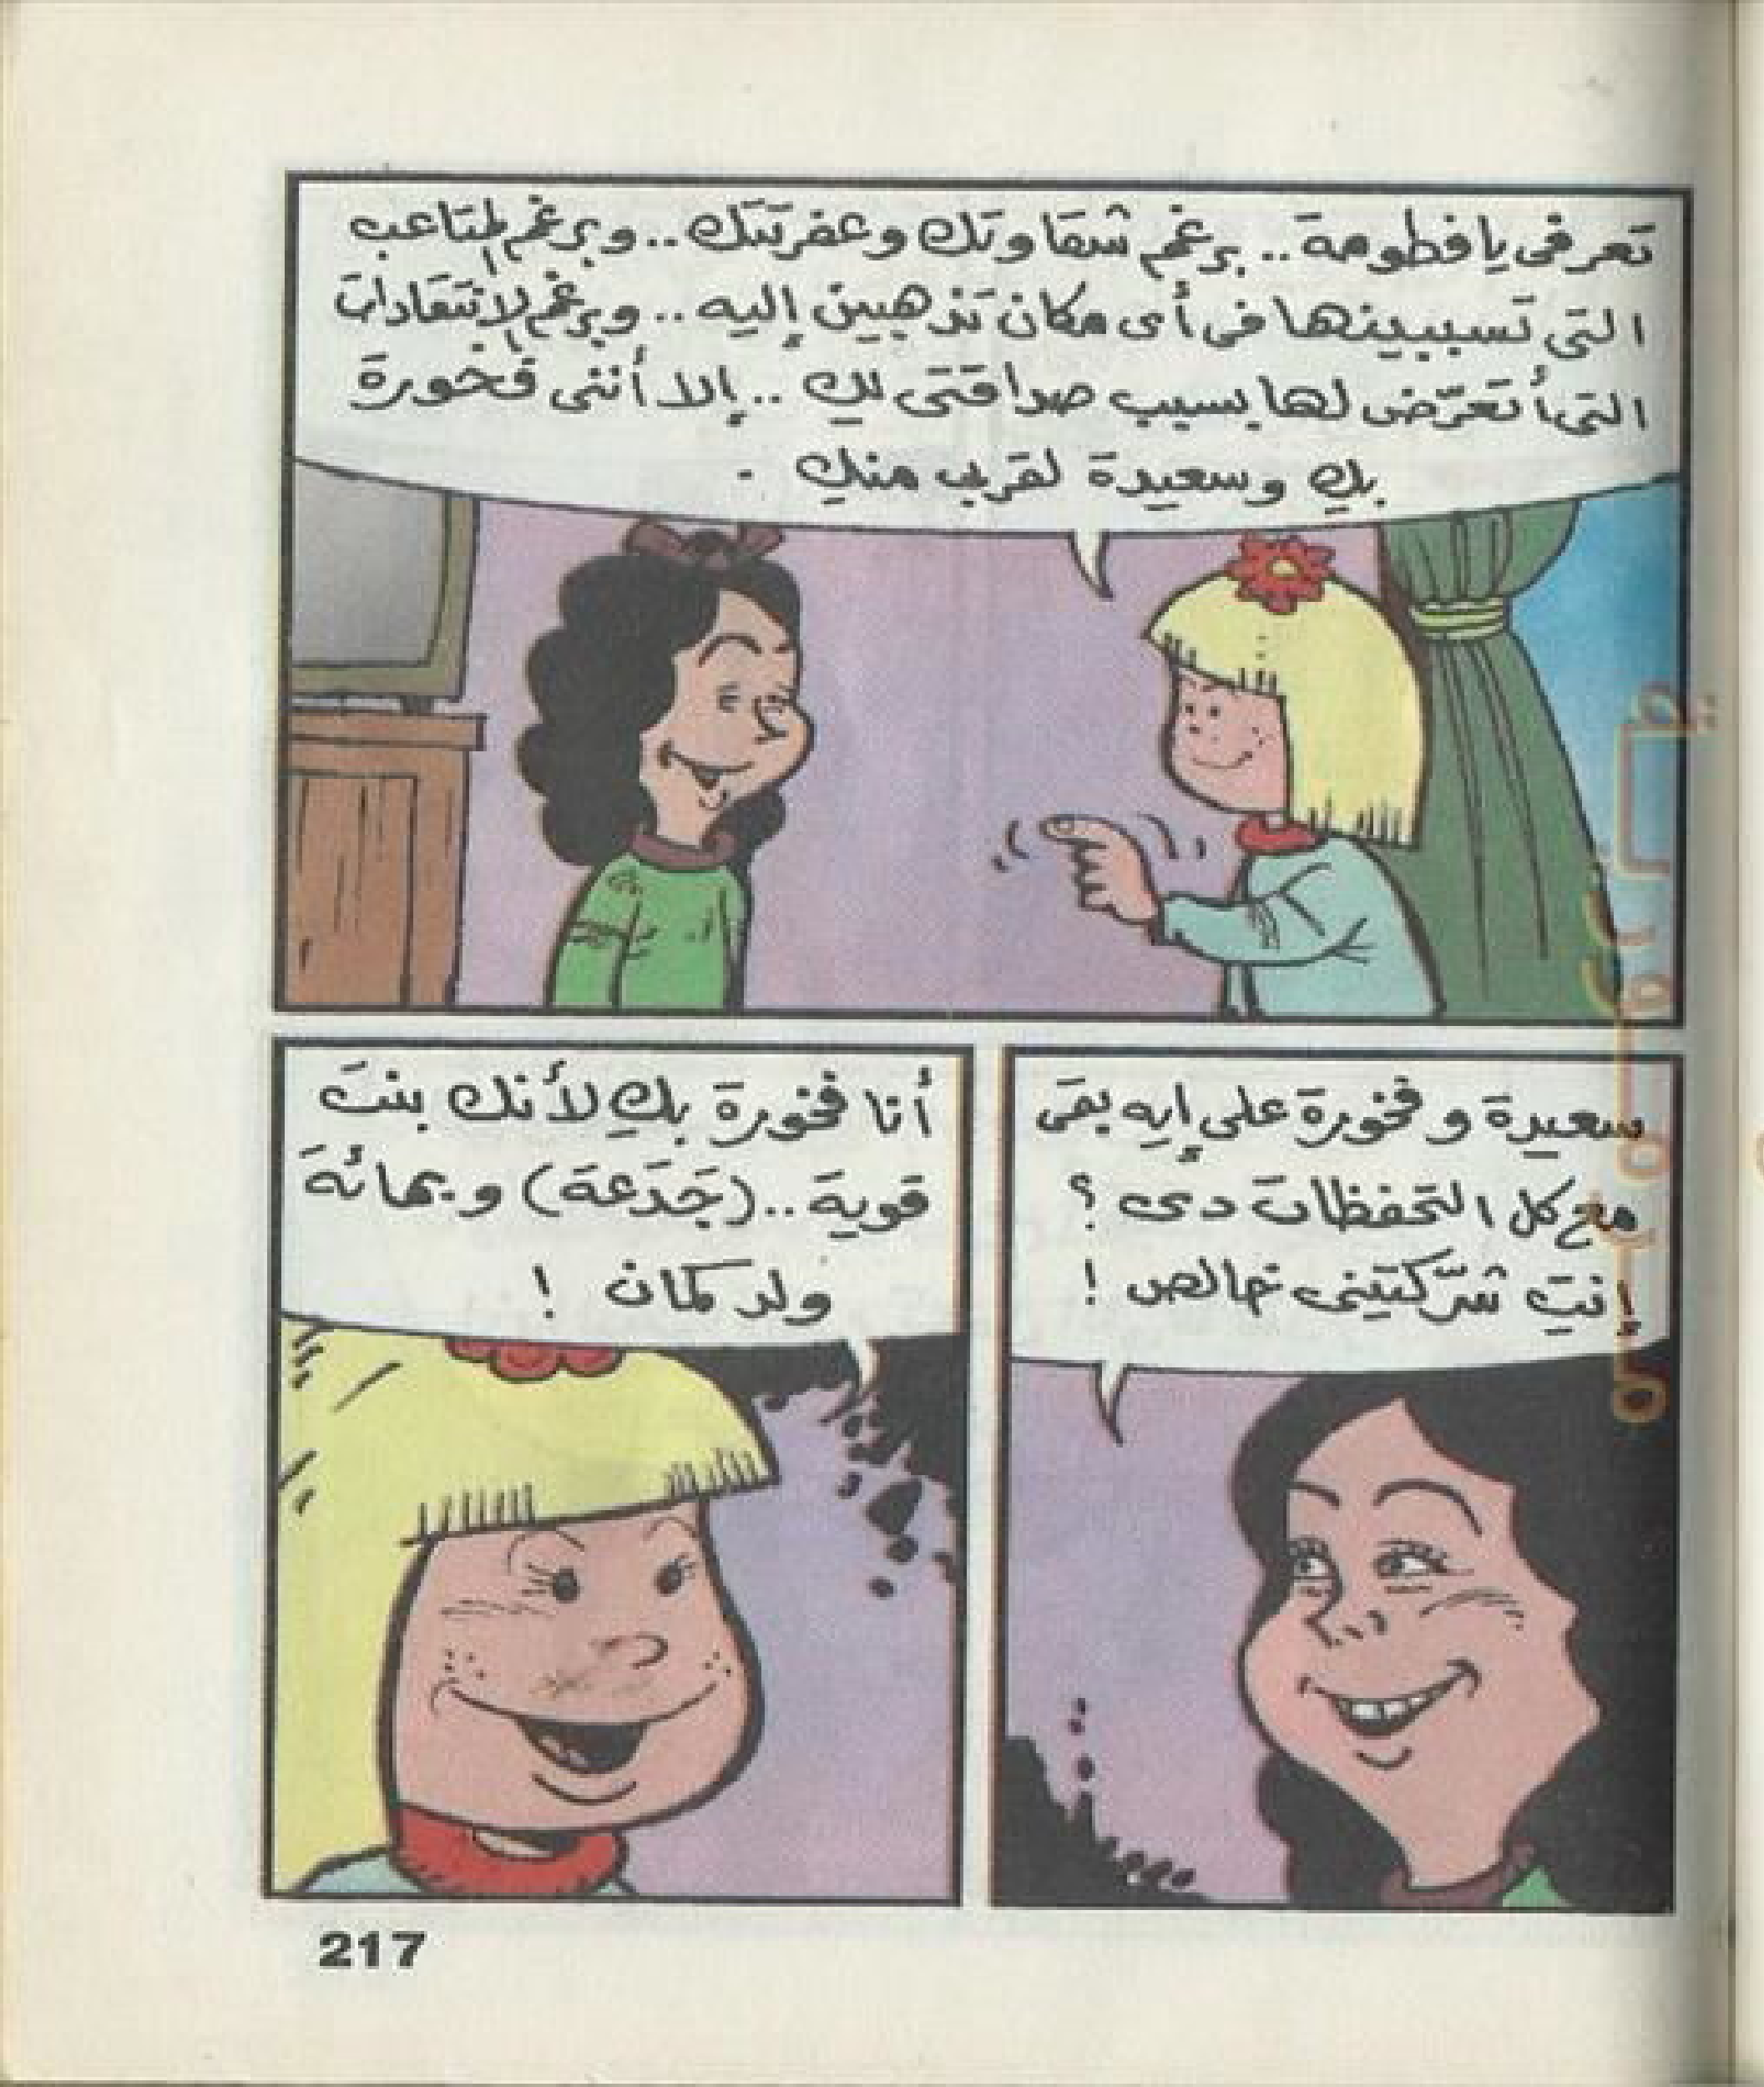 تعرفى يا فطومة .. برغم شقاوتك وعفرتتك .. وبرغم المتاعب
التى تسببينها فى أى مكان تذهبين إليه .. وبرغم الانتقادات
التى أتعرّض لها بسبب صداقتى لكِ .. إلا أننى فخورة
بكِ وسعيدة لقربى منكِ .
سعيدة وفخورة على إيه بقى
مع كل التحفظات دى ؟
إنتِ شرّكتينى خالص !
أنا فخورة بكِ لأنك بنت
قوية .. (جَدَعة) وبمائة
ولد كمان !
217